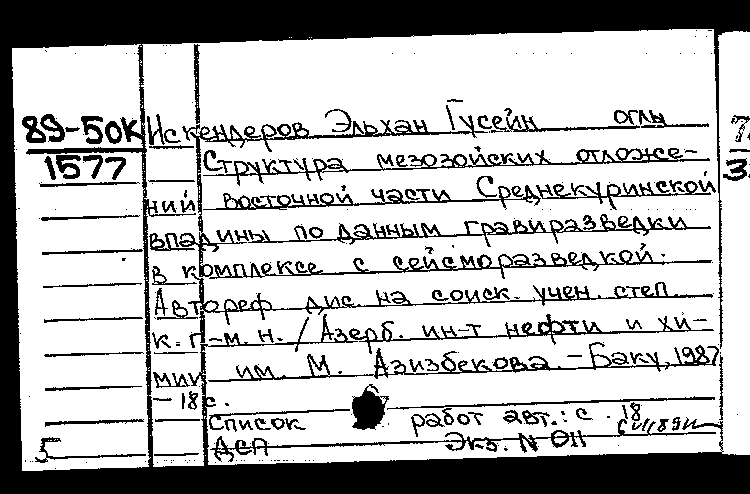 89-50К Искендеров Эльхан Гусейн оглы
1577 Структура мезозойских отложе-
ний восточной части Среднекуринской
впадины по данным гравиразведки
в комплексе с сейсморазведкой:
Автореф. дис. на соиск. учен. степ.
к. г.-м. н. / Азерб. ин-т нефти и хи-
мии им. М. Азизбекова. - Баку, 1987
- 18 с.
Список работ авт.: с. 18
5 ДСП Экз. N 011